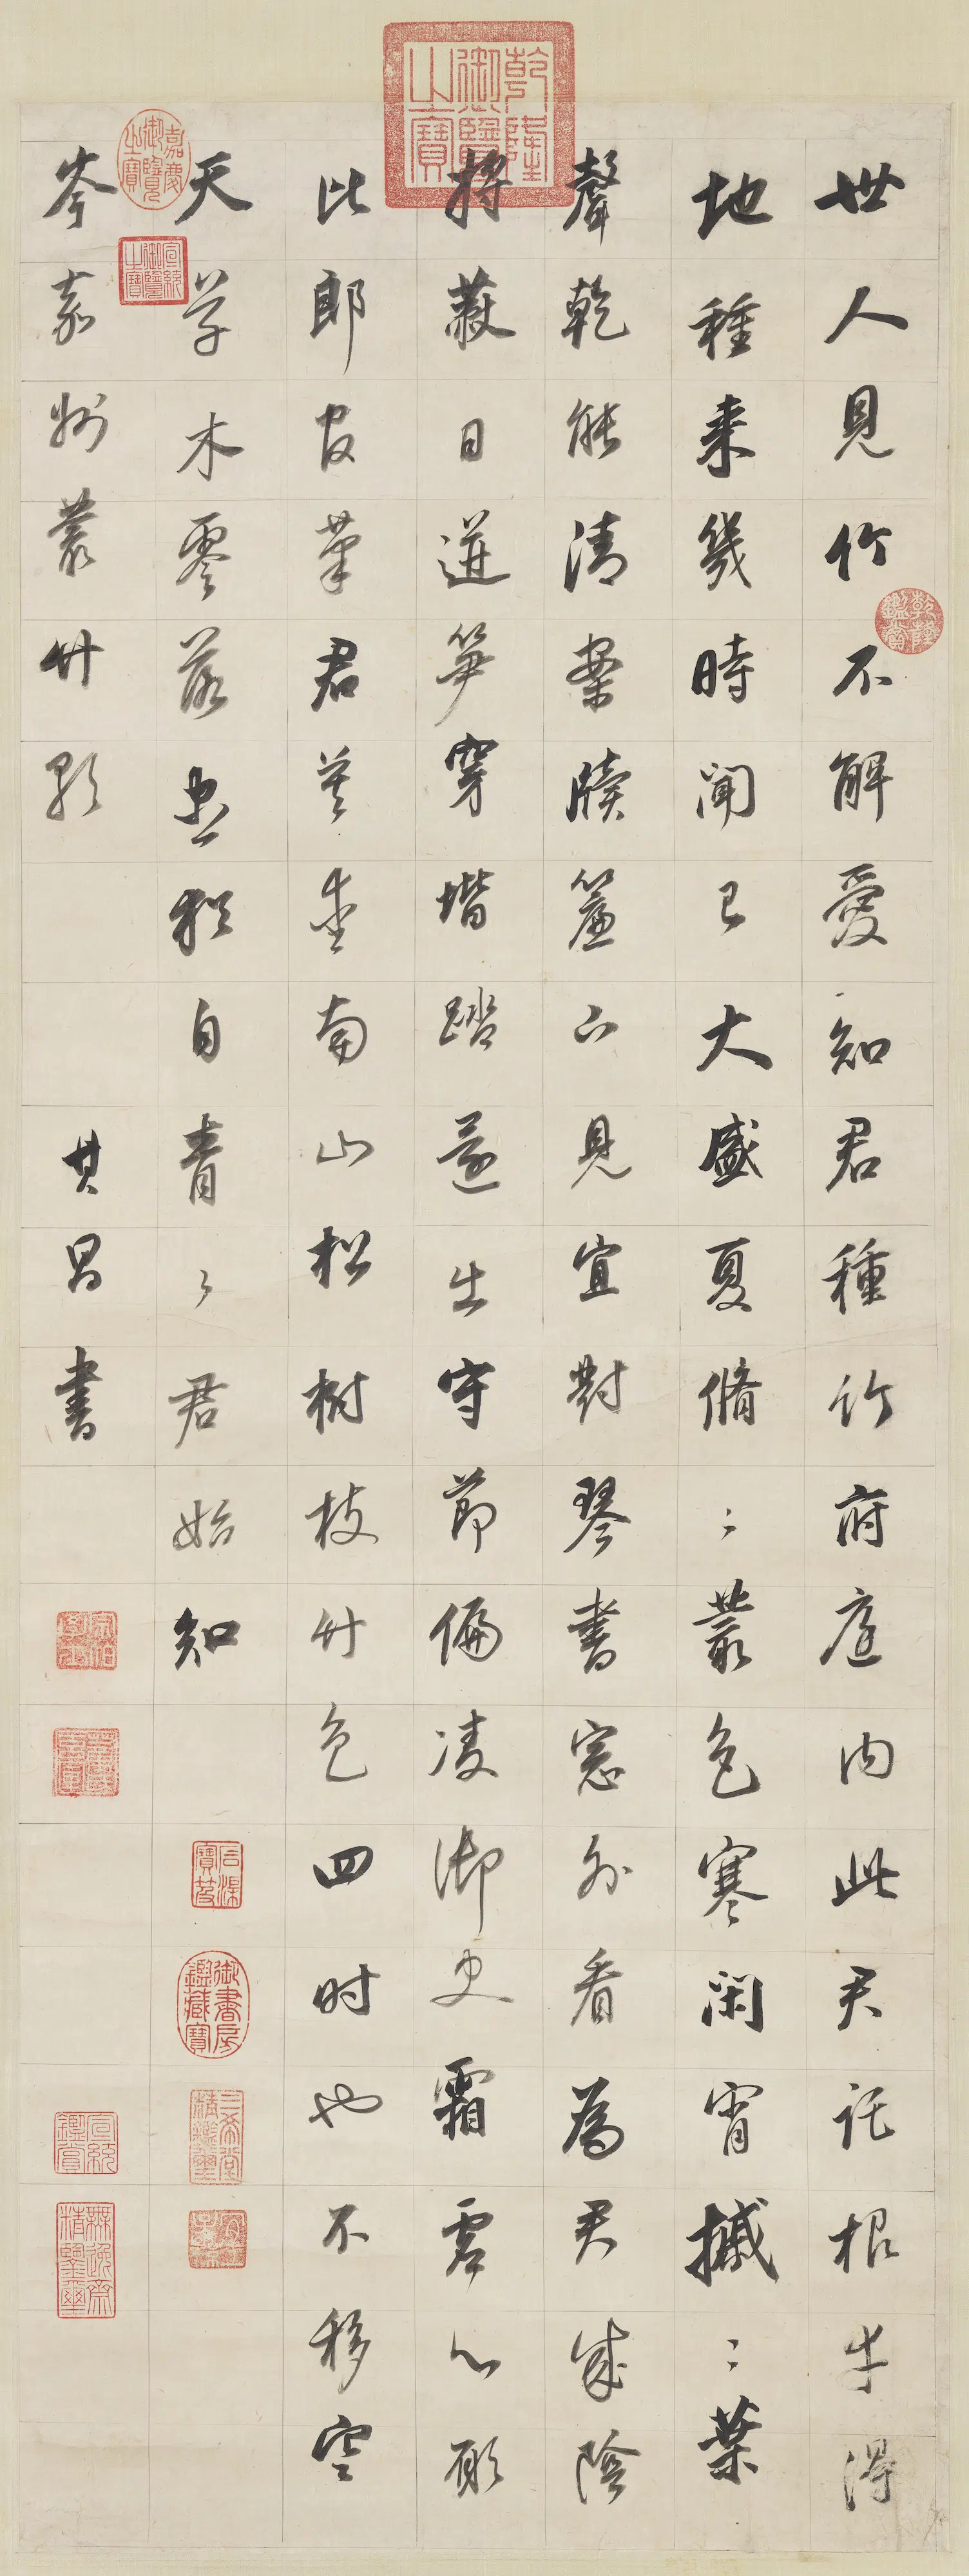 世人見竹不解愛知君種竹府庭内此君託根幸得
地種来幾時聞已大盛夏脩〻叢色寒閑宵摵〻葉
聲乾能清案牘簾下見宜對琴書窓外看為君成陰
將蔽日迸筍穿堦踏還出守節偏凌御史霜虛心願
比郎官筆君莫愛南山松樹枝竹色四时也不移空
天草木零落盡猶自青〻君始知
岑嘉州叢竹歌 其昌書
乾隆御覽之寶
嘉慶御覽之寶
宣統御覽之寶
乾隆鑑賞
石渠寶笈
御書房鑑藏寶
三希堂精鑑璽
宜子孫
宣統鑑賞
無逸齋精鑑璽